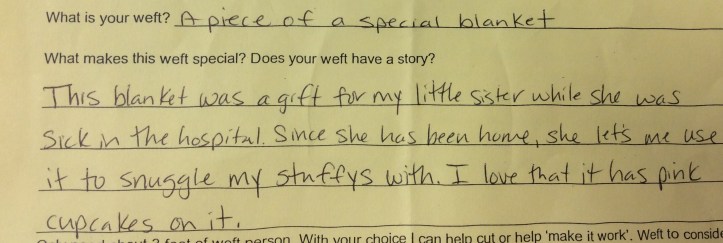 What is your weft? A piece of a special blanket
What makes this weft special? Does your weft have a story?
This blanket was a gift for my little sister while she was
sick in the hospital. Since she has been home, she let's me use
it to snuggle my stuffys with. I love that it has pink
cupcakes on it.
weft person. With your choice I can help cut or help 'make it work'. Weft to conside